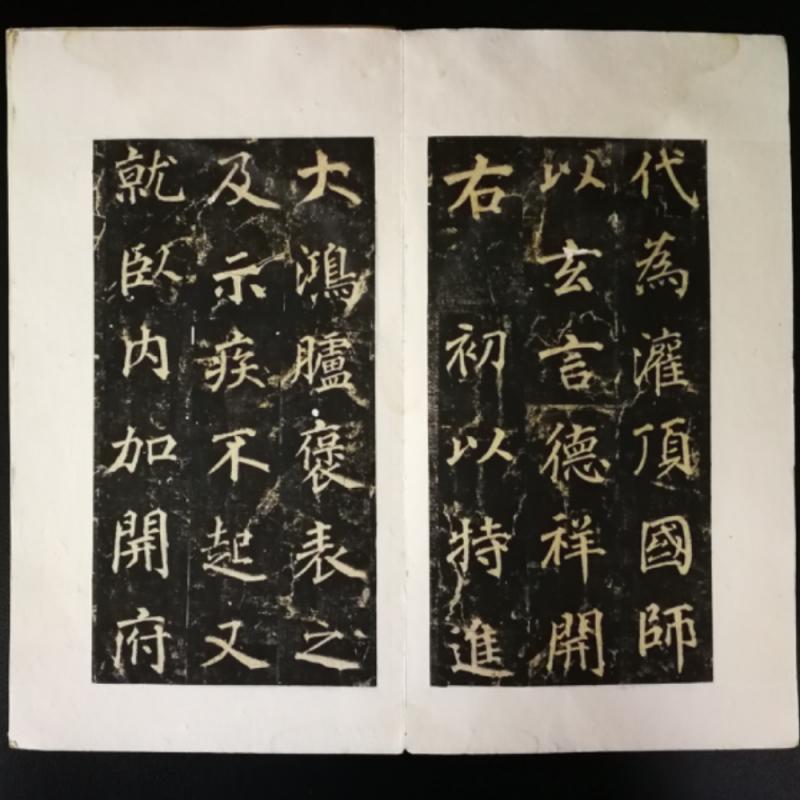 代為灌頂國師
以玄言德祥開
右 初以特進
大鴻臚褒表之
及示疾不起又
就臥内加開府